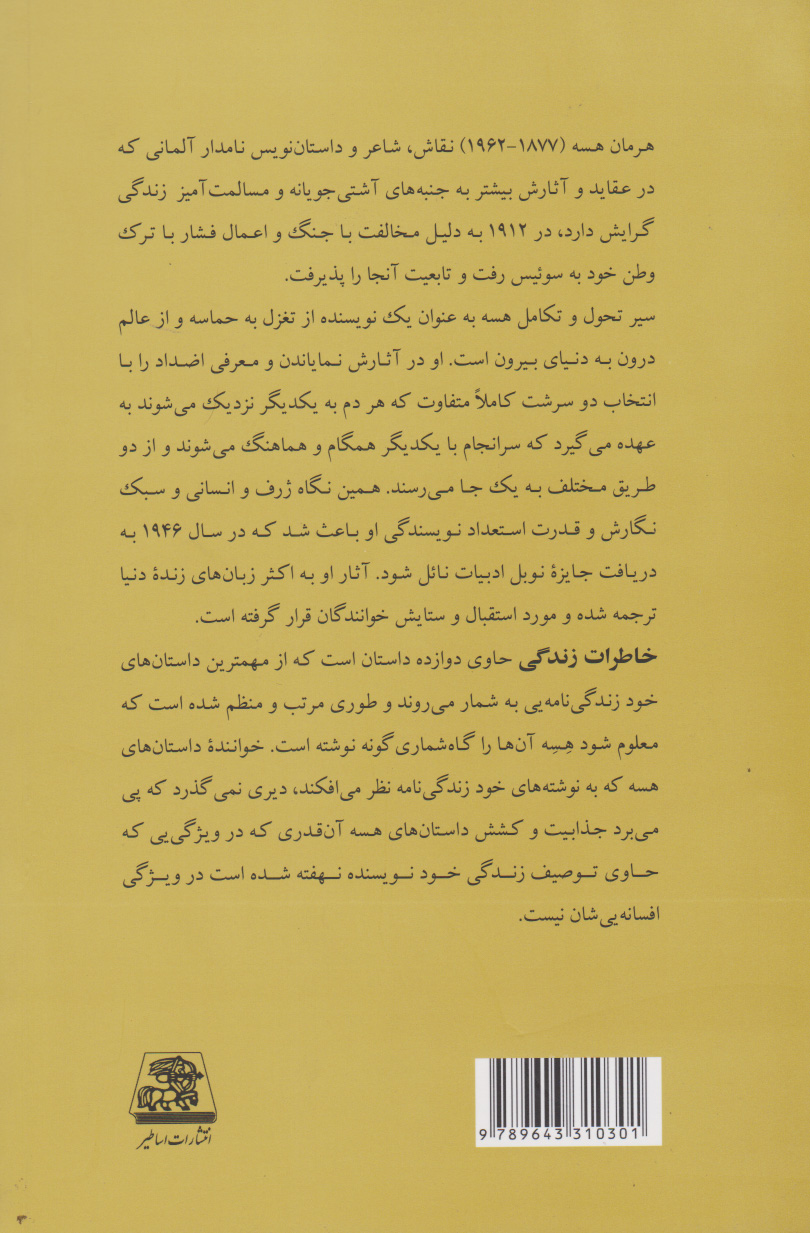 هرمان هسه (۱۸۷۷-۱۹۶۲) نقاش، شاعر و داستان‌نویس نامدار آلمانی که
در عقاید و آثارش بیشتر به جنبه‌های آشتی‌جویانه و مسالمت‌آمیز زندگی
گرایش دارد، در ۱۹۱۲ به دلیل مخالفت با جنگ و اعمال فشار با ترک
وطن خود به سوئیس رفت و تابعیت آنجا را پذیرفت.
سیر تحول و تکامل هسه به عنوان یک نویسنده از تغزل به حماسه و از عالم
درون به دنیای بیرون است. او در آثارش نمایاندن و معرفی اضداد را با
انتخاب دو سرشت کاملاً متفاوت که هر دم به یکدیگر نزدیک می‌شوند به
عهده می‌گیرد که سرانجام با یکدیگر همگام و هماهنگ می‌شوند و از دو
طریق مختلف به یک جا می‌رسند. همین نگاه ژرف و انسانی و سبک
نگارش و قدرت استعداد نویسندگی او باعث شد که در سال ۱۹۴۶ به
دریافت جایزهٔ نوبل ادبیات نائل شود. آثار او به اکثر زبان‌های زندهٔ دنیا
ترجمه شده و مورد استقبال و ستایش خوانندگان قرار گرفته است.
خاطرات زندگی حاوی دوازده داستان است که از مهمترین داستان‌های
خود زندگی‌نامه‌یی به شمار می‌روند و طوری مرتب و منظم شده است که
معلوم شود هِسِه آن‌ها را گاه‌شماری‌گونه نوشته است. خوانندهٔ داستان‌های
هسه که به نوشته‌های خود زندگی‌نامه نظر می‌افکند، دیری نمی‌گذرد که پی
می‌برد جذابیت و کشش داستان‌های هسه آن‌قدری که در ویژگی‌یی که
حاوی توصیف زندگی خود نویسنده نهفته شده است در ویژگی
افسانه‌یی‌شان نیست.
انتشارات اساطیر
9 789643 310301
۳